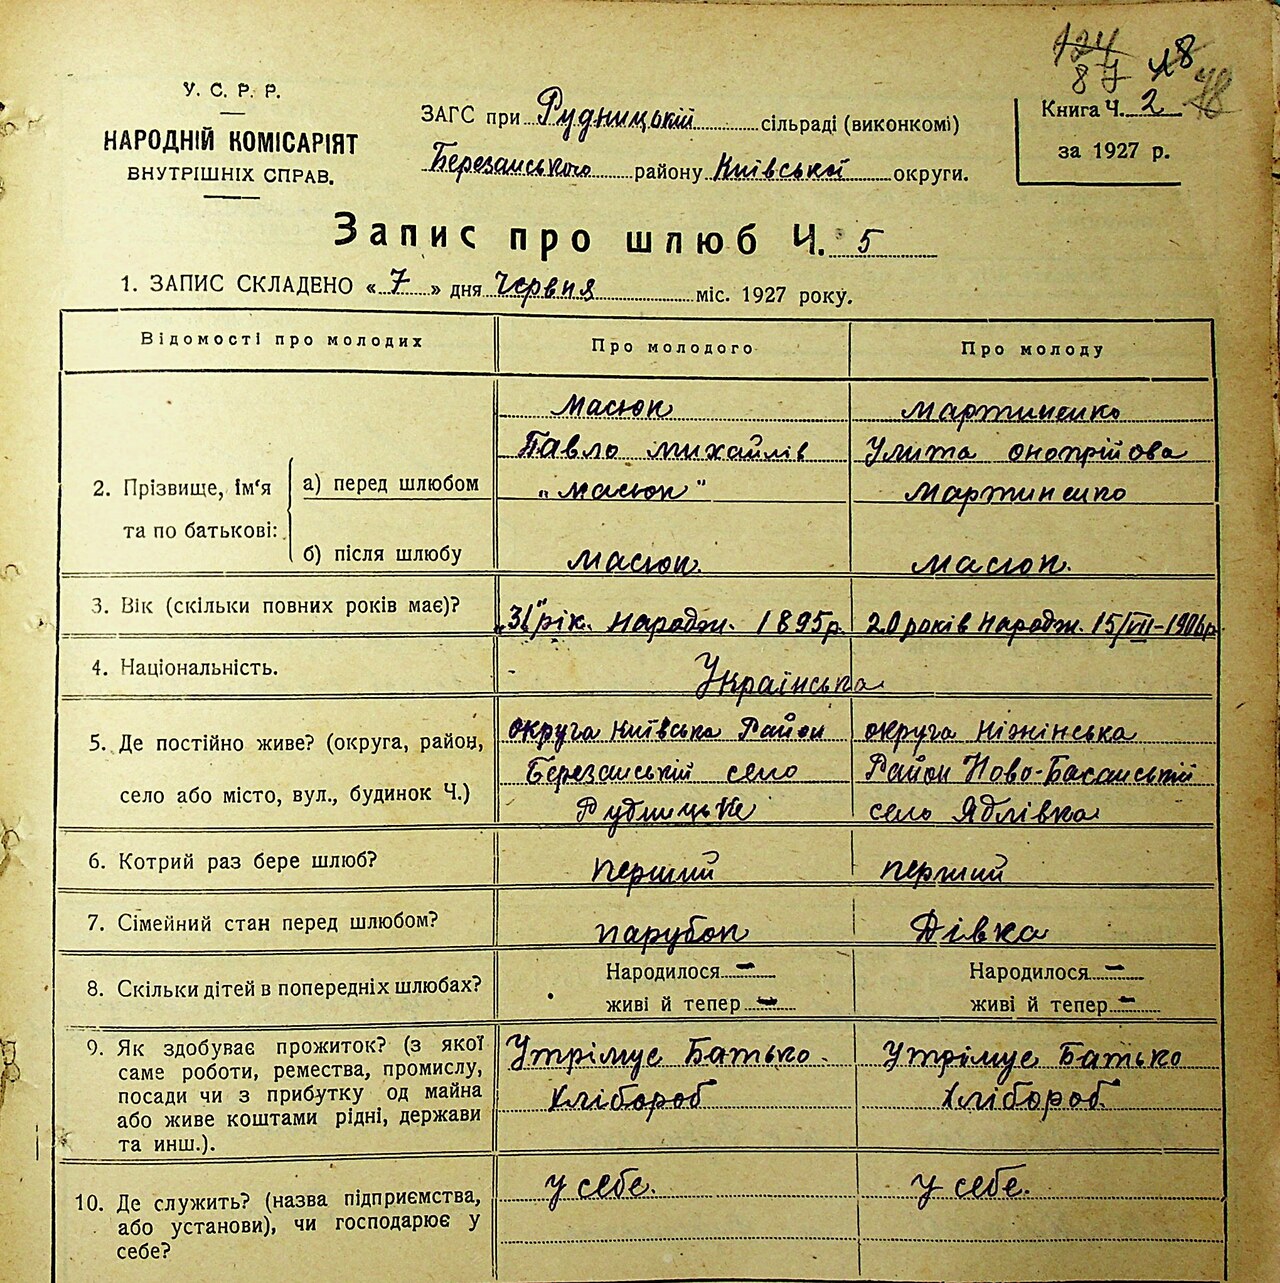 124
87 18
78
У. С. Р. Р.
НАРОДНІЙ КОМІСАРІЯТ
ВНУТРІШНІХ СПРАВ.
ЗАГС при Рудницькій сільраді (виконкомі)
Березанського району Київської округи.
Книга Ч. 2
за 1927 р.
Запис про шлюб Ч. 5
1. ЗАПИС СКЛАДЕНО « 7 » дня Червня міс. 1927 року.
Відомості про молодих Про молодого Про молоду
2. Прізвище, ім'я та по батькові:
Масюк Мартиненко
Павло Михайлів Улита Онопрійова
а) перед шлюбом „Масюк" Мартиненко
б) після шлюбу Масюк. Масюк.
3. Вік (скільки повних років має)? „31" рік. Народж. 1895р. 20 років Народж. 15/VII-1906р.
4. Національність. Українська
5. Де постійно живе? (округа, район, округа Київська Район округа Ніжінська
село або місто, вул., будинок Ч.) Березанській село Район Ново-Басанській
Рудницьке село Ядлівка
6. Котрий раз бере шлюб? перший перший
7. Сімейний стан перед шлюбом? парубок Дівка
8. Скільки дітей в попередніх шлюбах? Народилося — Народилося —
живі й тепер — живі й тепер —
9. Як здобуває прожиток? (з якої Утрімує Батько. Утрімує Батько
саме роботи, ремества, промислу,
посади чи з прибутку од майна Хлібороб Хлібороб.
або живе коштами рідні, держави
та инш.).
10. Де служить? (назва підприємства, у себе. у себе.
або установи), чи господарює у
себе?